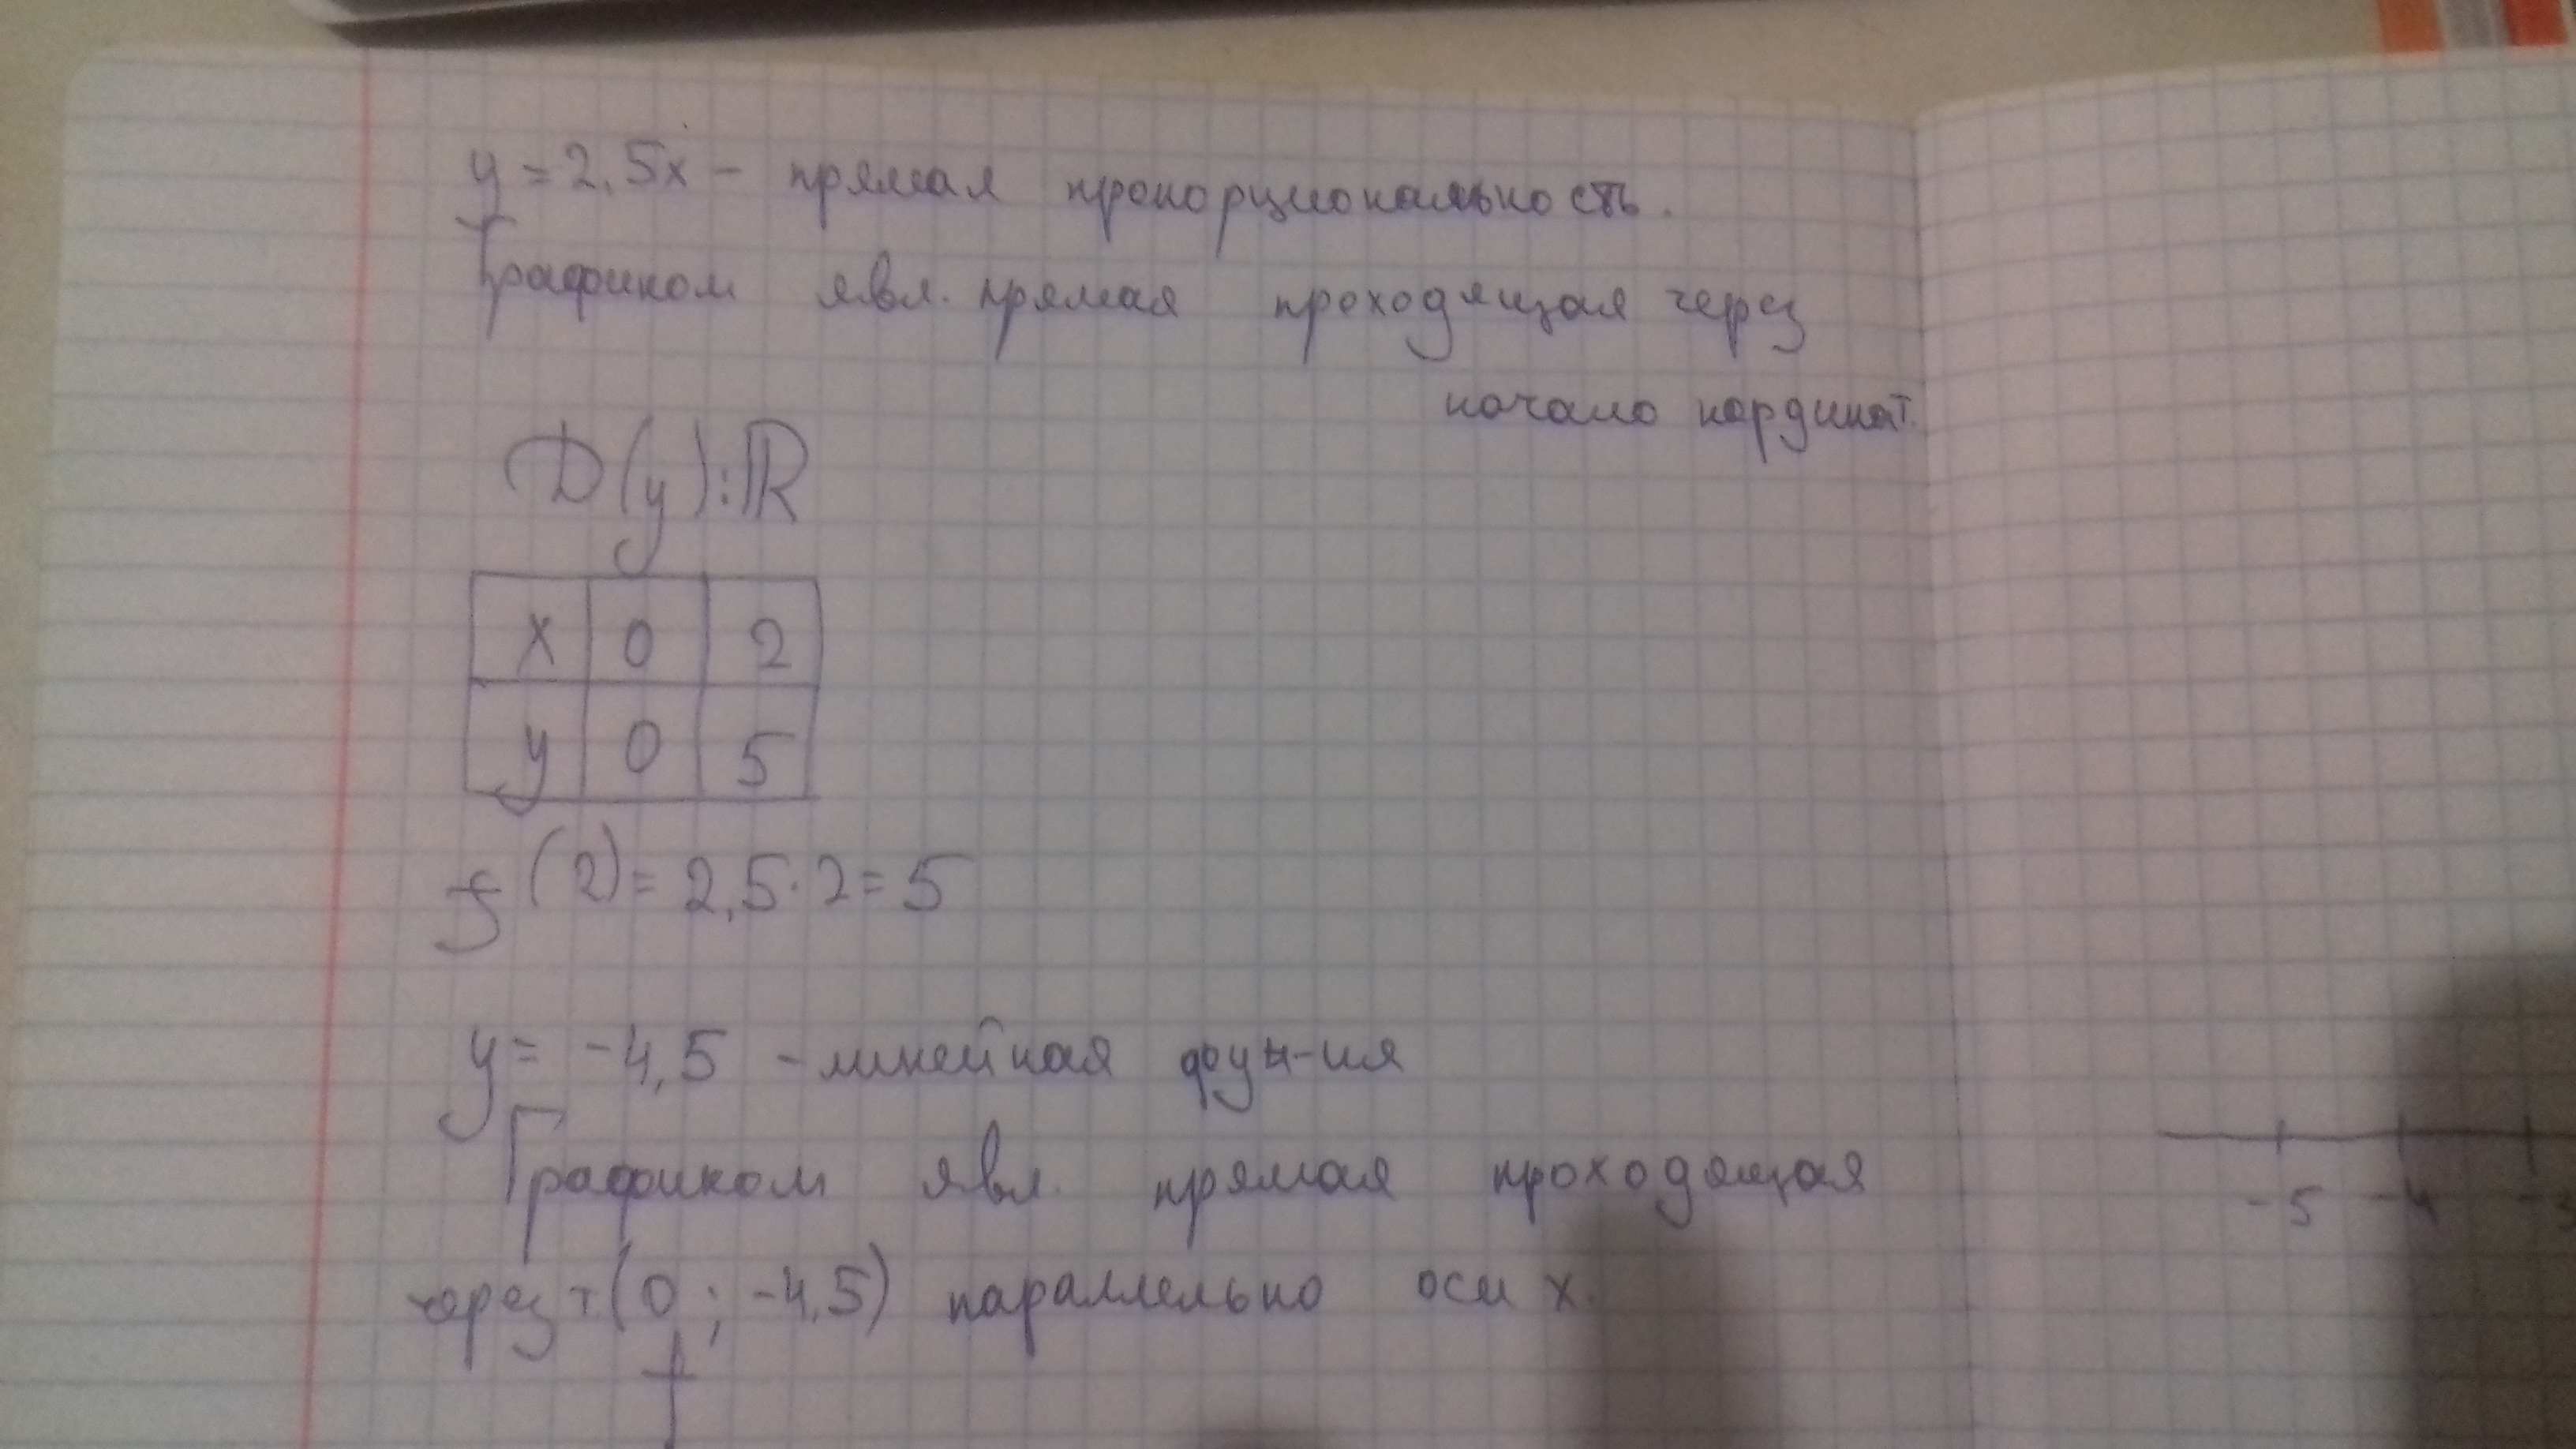 y = 2,5x – прямая пропорциональность.
Графиком явл. прямая проходящая через
начало кординат.
D(y):ℝ
x 0 2
y 0 5
f(2) = 2,5·2 = 5
y = -4,5 - линейная фун-ия
Графиком явл. прямая проходящая
через т(0; -4,5) параллельно оси x.
-5 -4